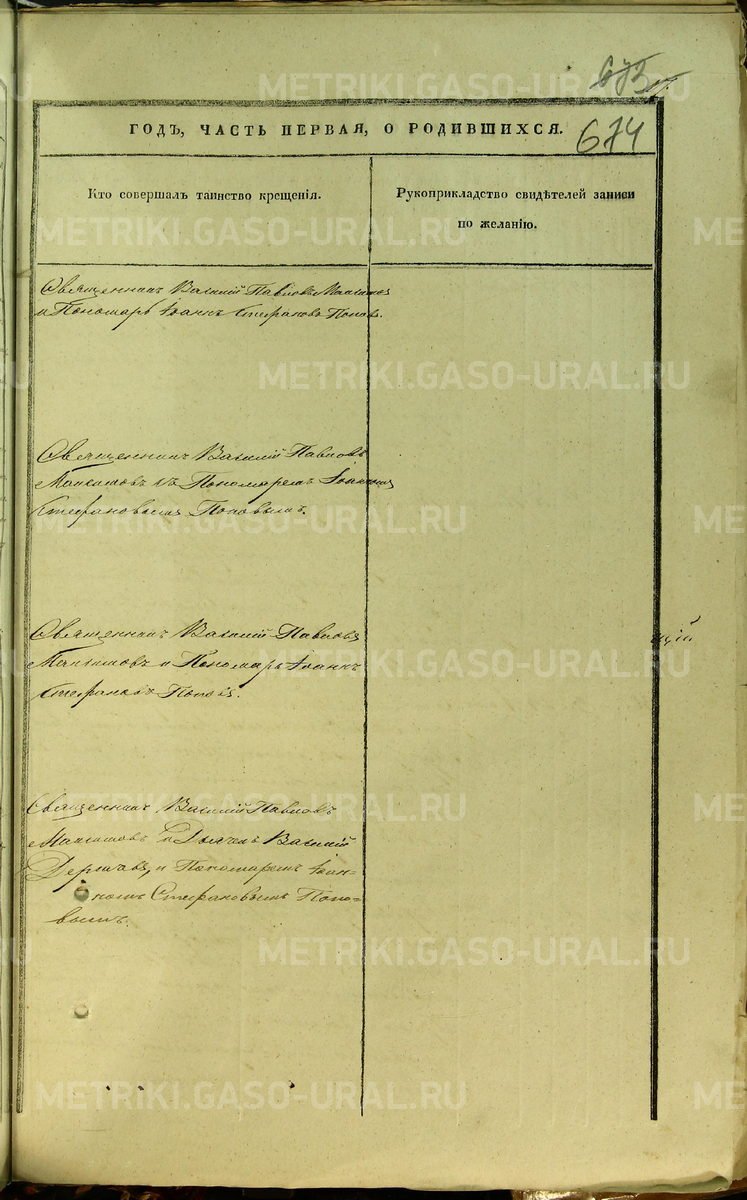 673
ГОДЪ, ЧАСТЬ ПЕРВАЯ, О РОДИВШИХСЯ.
674
Кто совершалъ таинство крещенія.
Рукоприкладство свидѣтелей записи
по желанію.
Священникъ Василій Павловъ Максимовъ
и Пономарь Іоаннъ Стефановъ Поповъ.
Священникъ Василій Павловъ
Максимовъ съ Пономаремъ Іоанномъ
Стефановымъ Поповымъ.
Священникъ Василій Павловъ
Максимовъ и Пономарь Іоаннъ
Стефановъ Поповъ.
щій
Священникъ Василій Павловъ
Максимовъ Василій
и Пономаремъ Іоан-
номъ Стефановымъ Попо=
вымъ.
METRIKI.GASO-URAL.RU